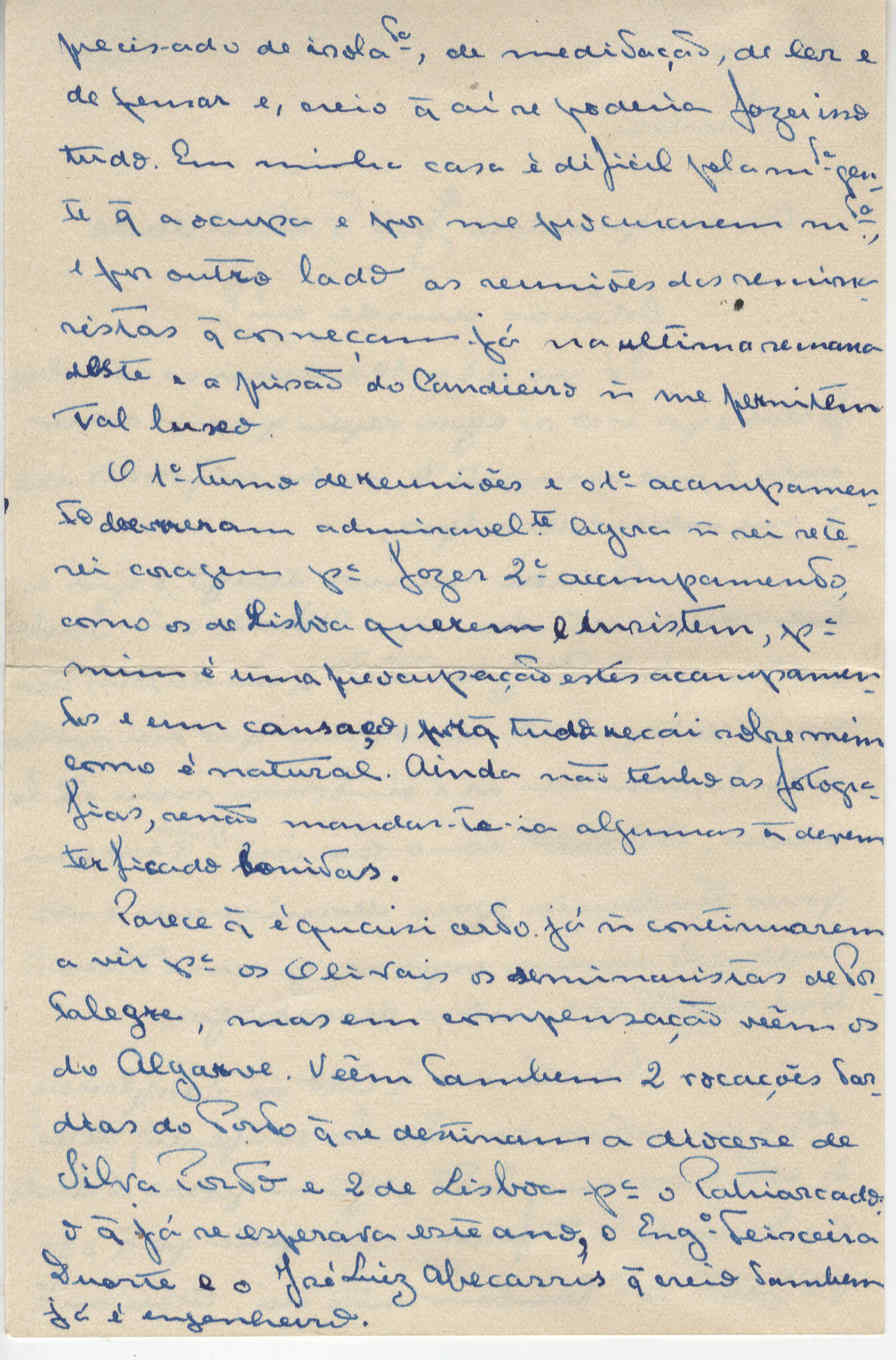 precisado de isolato, de meditação, de ler e
de pensar e, creio q̃ aí se poderia fazer isso
tudo. Em minha casa é difícil pela mta gen-
te q̃ a ocupa e por me procurarem mto,
e por outro lado as reuniões dos semina-
ristas q̃ começam já na ultima semana
deste e a prisão do Candieiro ñ me permitem
tal luxo.
O 1º turno de reuniões e o 1º acampamen-
to decorreram admiravelte. Agora ñ sei se te-
rei coragem pª fazer 2º acampamento,
como os de Lisboa querem e insistem, pª
mim é uma preocupação estes acampamen-
tos e um cansaço, porq̃ tudo recái sobre mim
como é natural. Ainda não tenho as fotogra-
fias, senão mandar-te-ia algumas q̃ devem
ter ficado bonitas.
Parece q̃ é quaisi certo já ñ continuarem
a vir pª os Olivais os seminaristas de Por-
talegre, mas em compensação veêm os
do Algarve. Veêm tambem 2 vocações tar-
dias do Porto q̃ se destinam a diocese de
Silva Porto e 2 de Lisboa pª o Patriarcado
o q̃ já se esperava este ano, o Engº Teixeira
Duarte e o José Luiz Abecassis q̃ creio tambem
já é engenheiro.